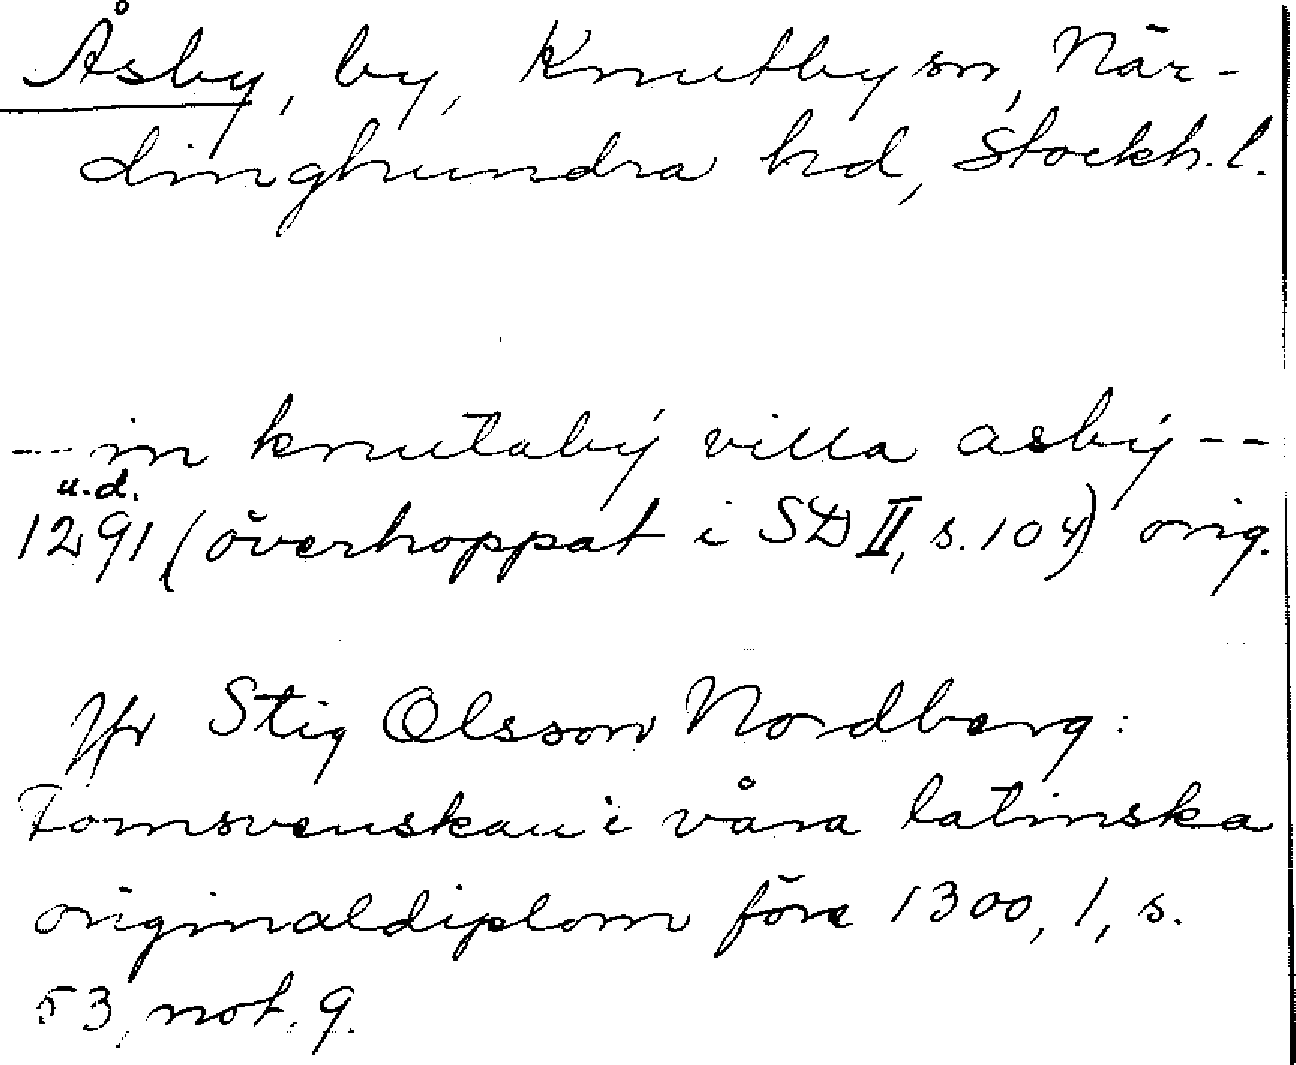 Åsby, by, Knutby sn, När-
dinghundra hd, Stockh. l.
--- in knutaby villa asby --
u.d.
1291 (överhoppat i SD II, s. 104) orig.
Jfr Stig Olsson Nordberg:
Fornsvenskan i våra latinska
originaldiplom före 1300, 1, s.
53, not. 9.